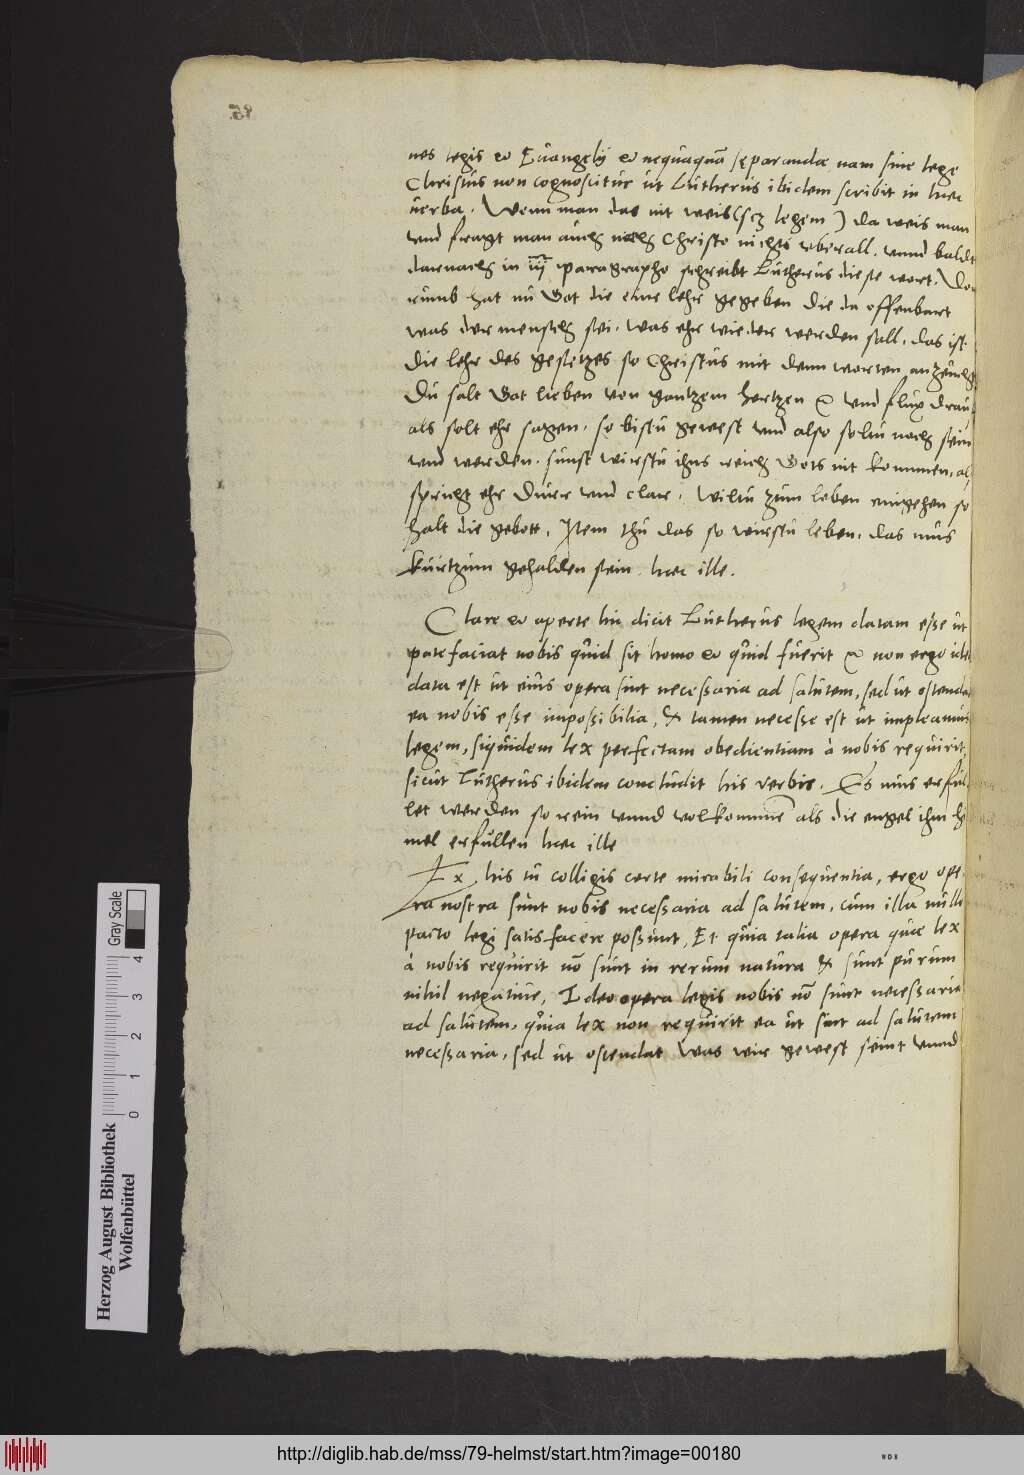 nes legis et Euangelij et nequaquã separandæ, nam sine lege
Christus non cognoscitur ut Lutherus ibidem scribit in hæc
uerba. Wenn man das nit weis (scz legem) da weis man
vnd fragt man auch nach Christo nichts vberall. vnnd baldt
darnach in iij paragrapho schreibt Lutherus diese wort. Da
rumb hat nu Got die eine lehr gegeben die da offenbart
was der mensch sei. was ehr wieder werden sall. das ist
die lehr des gesetzes so Christus mit denn worten anzeucht
Du salt Got lieben von gantzem hertzen vnd flux drauf
als solt ehr sagen. so bistu gewest vnd also soltu noch sein
vnd werden. sunst wirstu ihns reich Gots nit kommen. al
spricht ehr durr vnd clar. wiltu zum leben eingehen so
halt die gebott. Item thu das so wirstu leben. das mus
kurtzum gehalden sein. hæc ille.
Clare et aperte hic dicit Lutherus legem datam esse ut
patefaciat nobis quid sit homo et quid fuerit non ergo ideo
data est ut eius opera sint necessaria ad salutem, sed ut ostendat
ea nobis esse impossibilia, & tamen necesse est ut impleamus
legem, siquidem lex perfectam obedientiam à nobis requirit,
sicut Lutherus ibidem concludit his verbis. Es mus erful
let werden so rein vnnd volkommē als die engel ihm hi
mel erfullen hæc ille
Ex his tu colligis certe mirabili consequentia, ergo ope
ra nostra sunt nobis necessaria ad salutem, cum illa nullo
pacto legi satisfacere possunt, Et quia talia opera quæ lex
à nobis requirit nō sunt in rerum natura & sunt purum
nihil negatiue, Ideo opera legis nobis nō sunt necessaria
ad salutem, quia lex non requirit ea ut sint ad salutem
necessaria, sed ut ostendat was wir gewest seint vnnd
Herzog August Bibliothek
Wolfenbüttel
0 1 2 3 4
Gray Scale
http://diglib.hab.de/mss/79-helmst/start.htm?image=00180